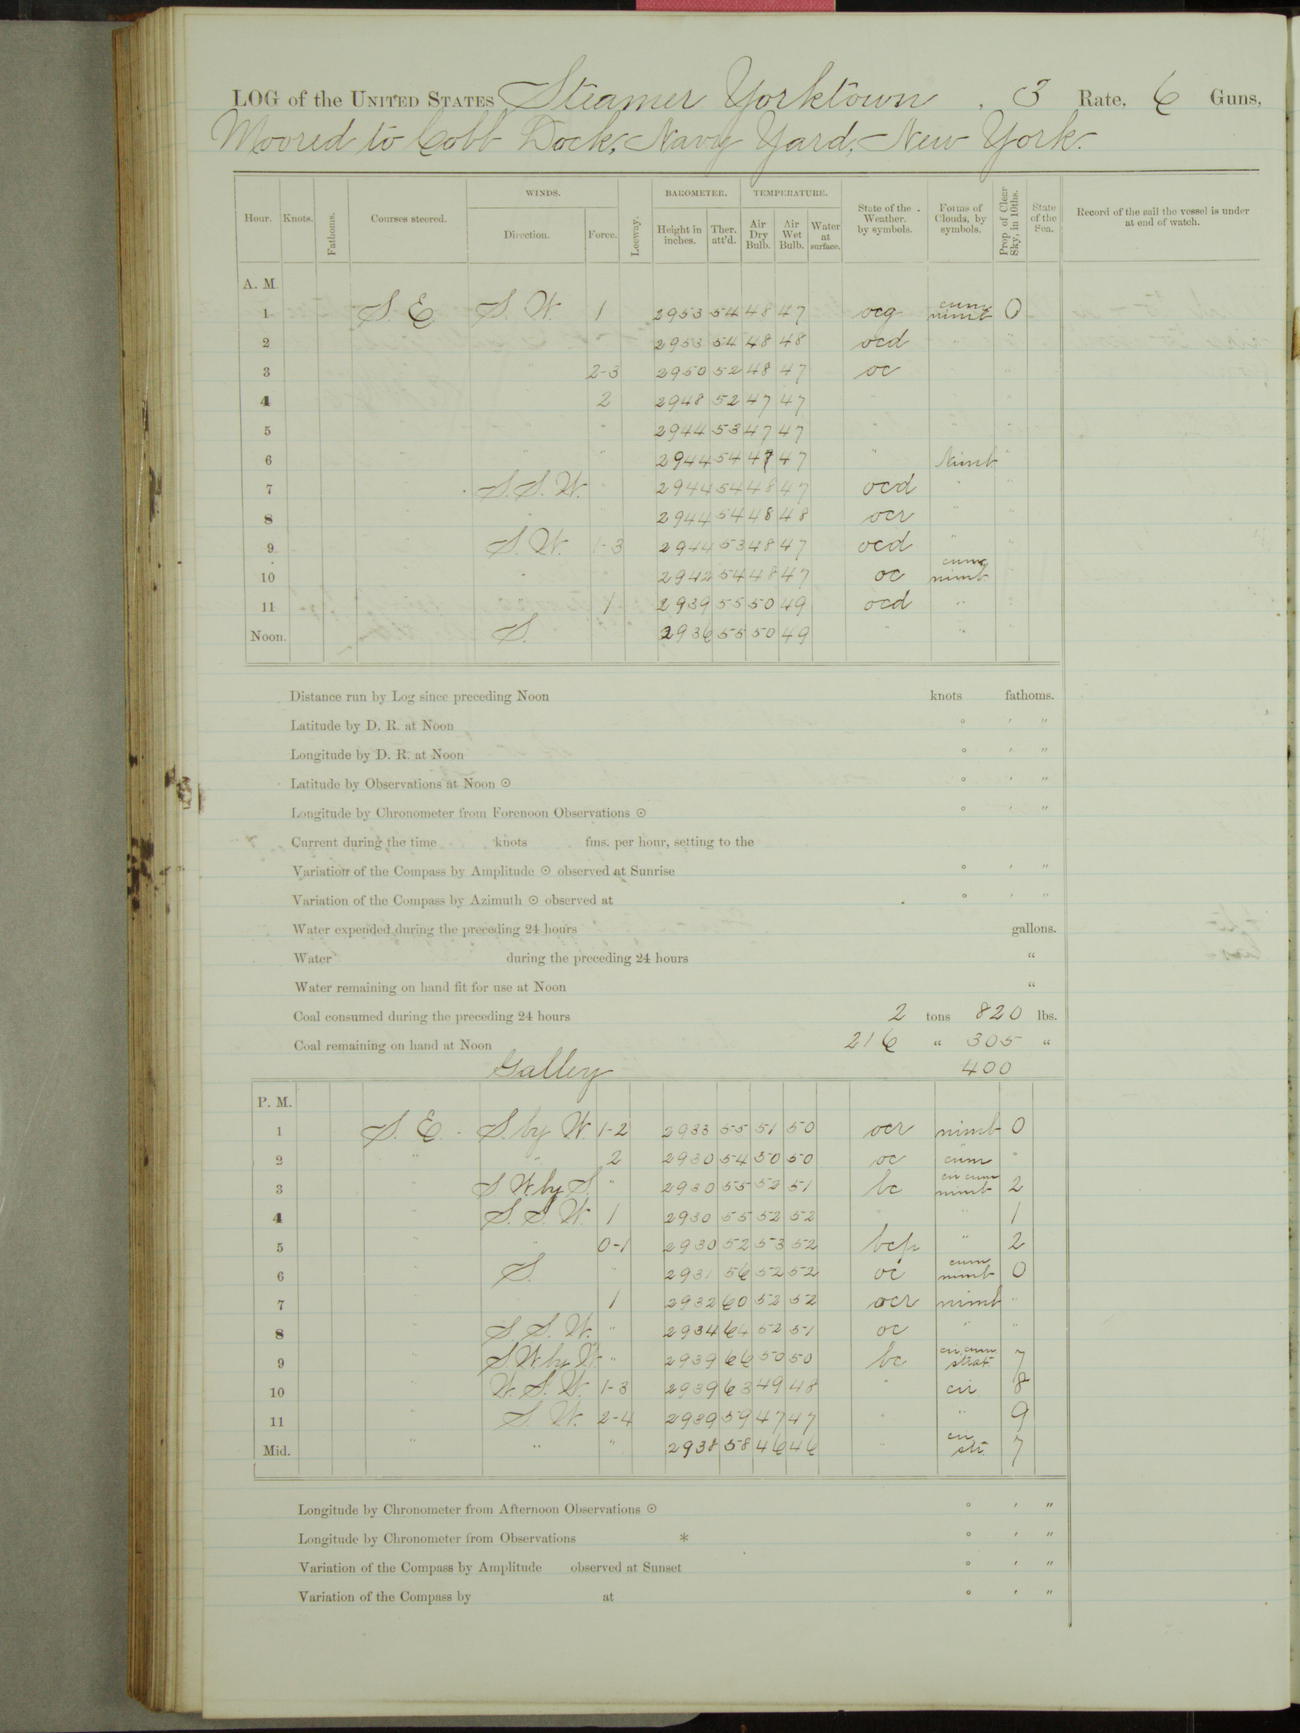 LOG of the UNITED STATES Steamer Yorktown, 3 Rate, 6 Guns,
Moored to Cobb Dock, Navy Yard, New York.
WINDS. BAROMETER. TEMPERATURE.
Hour. Knots. Fathoms. Courses steered. Direction. Force. Leeway. Height in inches. Ther. att'd. Air Dry Bulb. Air Wet Bulb. Water at surface. State of the Weather. by symbols. Forms of Clouds, by symbols. Prop. of Clear Sky, in 10ths. State of the Sea. Record of the sail the vessel is under at end of watch.
A. M.
1 S. E S. W. 1 2953 54 48 47 ocg cum nimb 0
2 " " " 2953 54 48 48 ocd " "
3 " " 2-3 2950 52 48 47 oc " "
4 " " 2 2948 52 47 47 " " "
5 " " " 2944 53 47 47 " " "
6 " " " 2944 54 47 47 " Nimb "
7 " S. S. W. " 2944 54 48 47 ocd " "
8 " " " 2944 54 48 48 ocr " "
9 " S. W. 1-3 2944 53 48 47 ocd " "
10 " " " 2942 54 48 47 oc cum nimb "
11 " " 1 2939 55 50 49 ocd " "
Noon. " S. " 2936 55 50 49 " " "
Distance run by Log since preceding Noon knots fathoms.
Latitude by D. R. at Noon ° ′ ″
Longitude by D. R. at Noon ° ′ ″
Latitude by Observations at Noon ☉ ° ′ ″
Longitude by Chronometer from Forenoon Observations ☉ ° ′ ″
Current during the time knots fms. per hour, setting to the
Variation of the Compass by Amplitude ☉ observed at Sunrise ° ′ ″
Variation of the Compass by Azimuth ☉ observed at ° ′ ″
Water expended during the preceding 24 hours gallons.
Water during the preceding 24 hours "
Water remaining on hand fit for use at Noon "
Coal consumed during the preceding 24 hours 2 tons 820 lbs.
Coal remaining on hand at Noon 216 " 305 "
Galley 400
P. M.
1 S. E. S. by W. 1-2 2933 55 51 50 ocr nimb 0
2 " " 2 2930 54 50 50 oc cum "
3 " S W by S. " 2930 55 52 51 bc cir cum nimb 2
4 " S. S. W. 1 2930 55 52 52 " " 1
5 " " 0-1 2930 52 53 52 bcp " 2
6 " S. " 2931 56 52 52 oc cum nimb 0
7 " 1 2932 60 52 52 ocr nimb "
8 " S S. W. " 2934 64 52 51 oc " "
9 " S. W by W " 2939 66 50 50 bc cir cum strat 7
10 " W. S. W. 1-3 2939 63 49 48 " cir 8
11 " S. W. 2-4 2939 59 47 47 " " 9
Mid. " " " 2938 58 46 46 " cir str. 7
Longitude by Chronometer from Afternoon Observations ☉ ° ′ ″
Longitude by Chronometer from Observations * ° ′ ″
Variation of the Compass by Amplitude observed at Sunset ° ′ ″
Variation of the Compass by at ° ′ ″